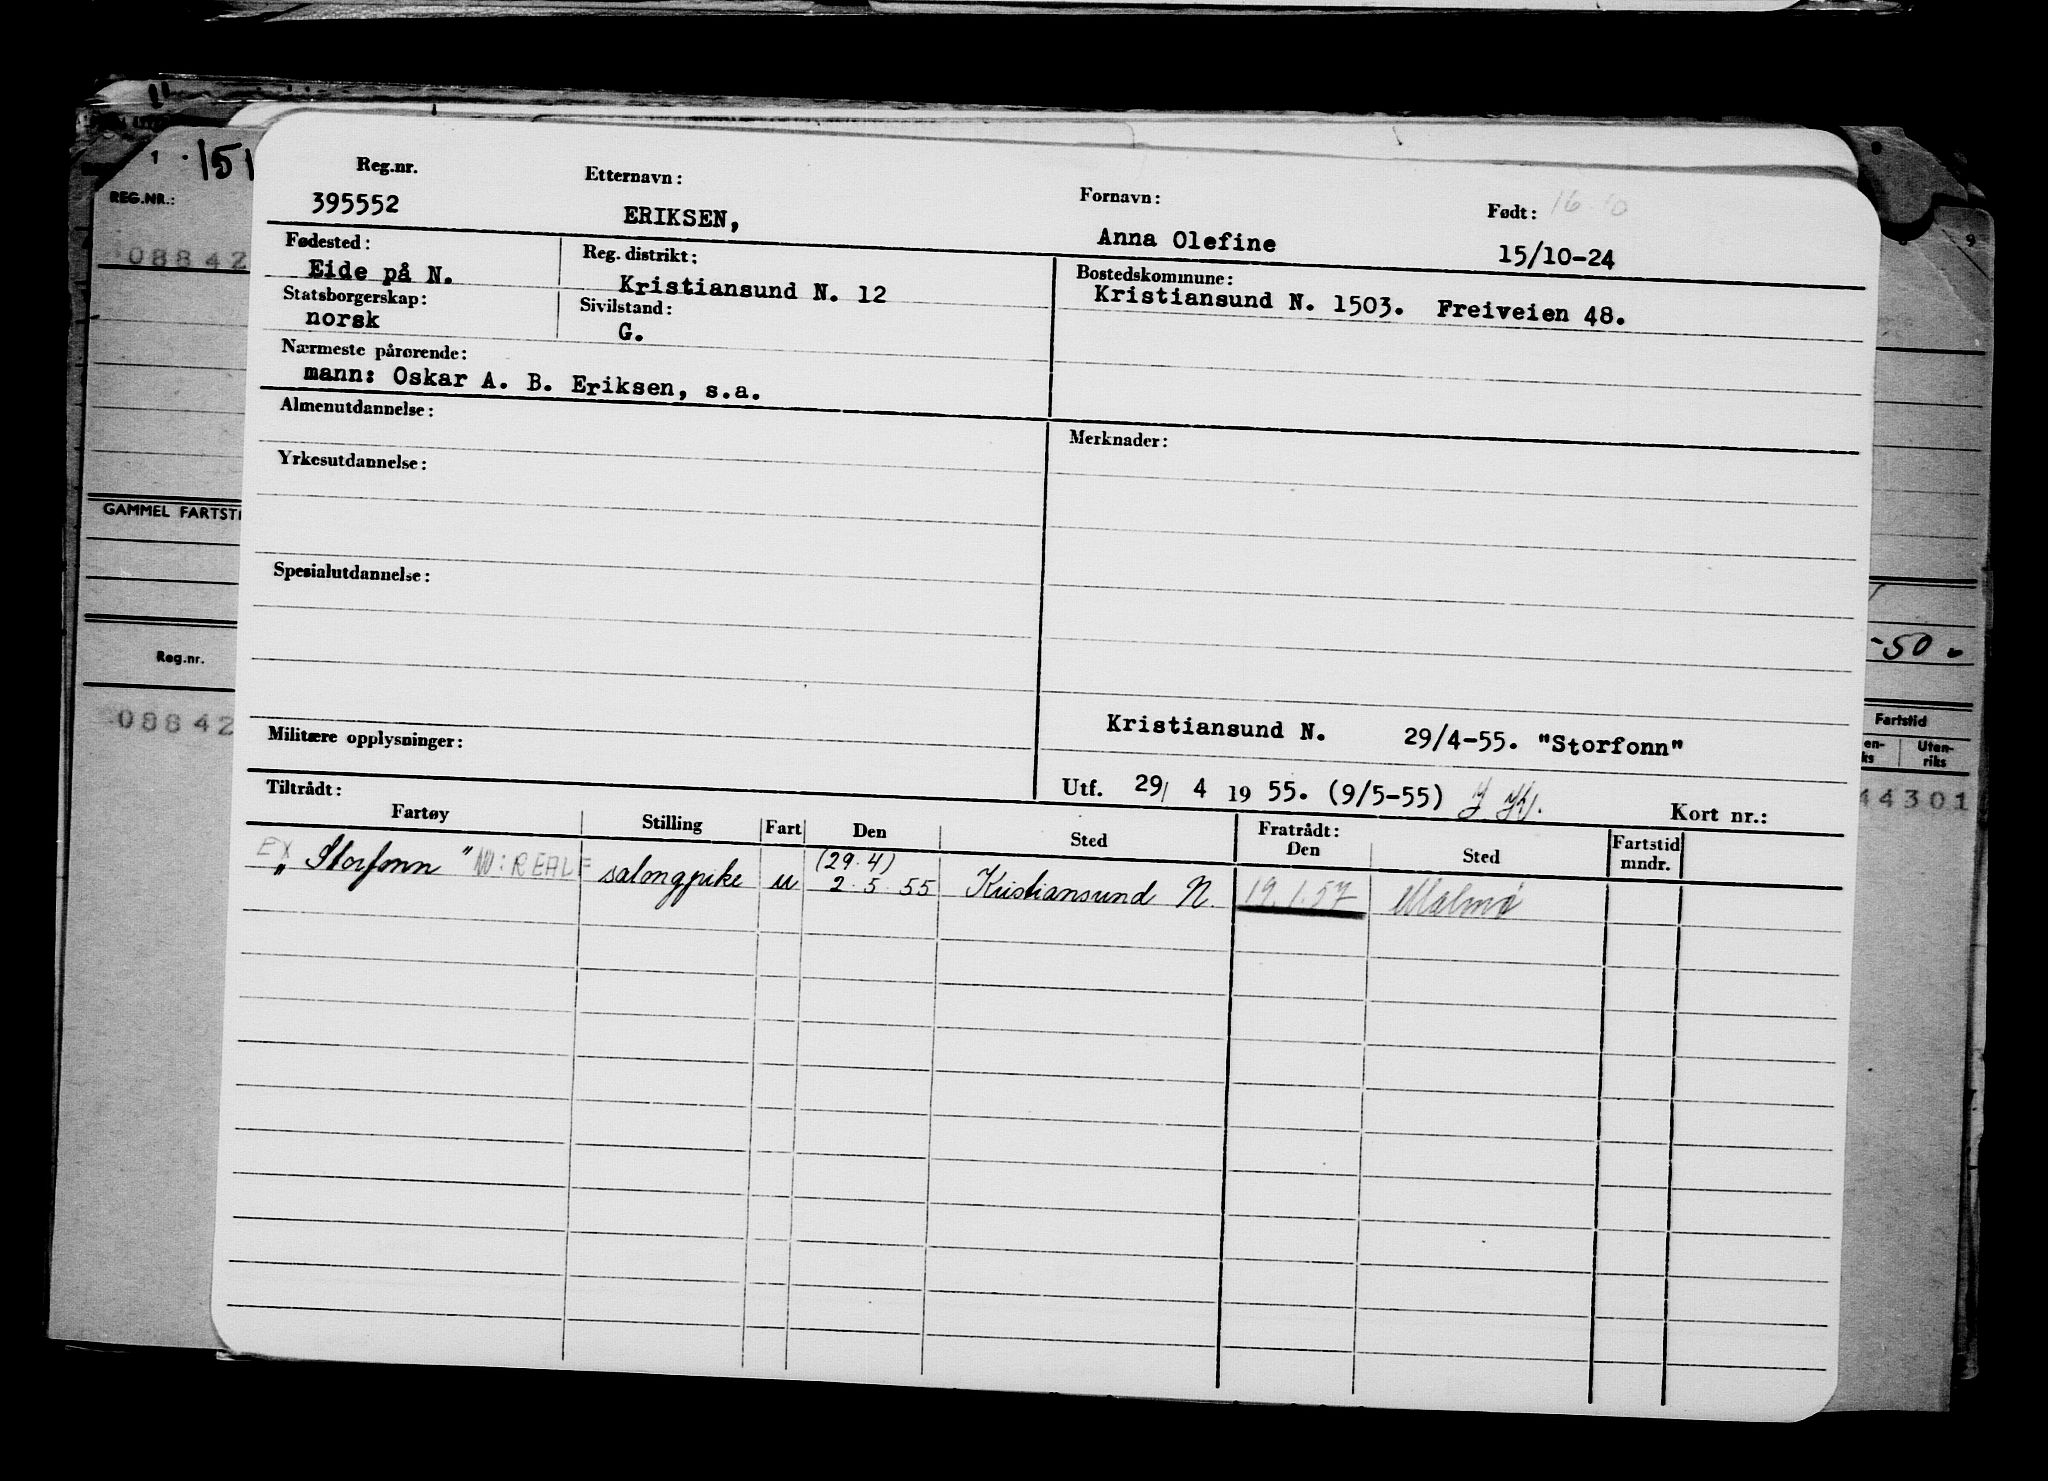 1 · 151
REG.NR.:
08842
GAMMEL FARTSTI
Reg.nr.
08842
Reg.nr. Etternavn: Fornavn: Født: 16 10
395552 ERIKSEN, Anna Olefine 15/10-24
Fødested: Reg. distrikt: Bostedskommune:
Eide på N. Kristiansund N. 12 Kristiansund N. 1503. Freiveien 48.
Statsborgerskap: Sivilstand:
norsk G.
Nærmeste pårørende:
mann: Oskar A. B. Eriksen, s.a.
Almenutdannelse: Merknader:
Yrkesutdannelse:
Spesialutdannelse:
Kristiansund N. 29/4-55. "Storfonn"
Militære opplysninger:
Utf. 29/ 4 19 55. (9/5-55) Kort nr.:
Tiltrådt: Fratrådt:
Fartøy Stilling Fart Den Sted Den Sted Fartstid mndr.
(29.4)
EX „Storfonn" NU: REALF salongpike u 2.5.55 Kristiansund N. 19.1.57 Malmø
9
-50.
Fartstid
en- Uten-
ks riks
44301